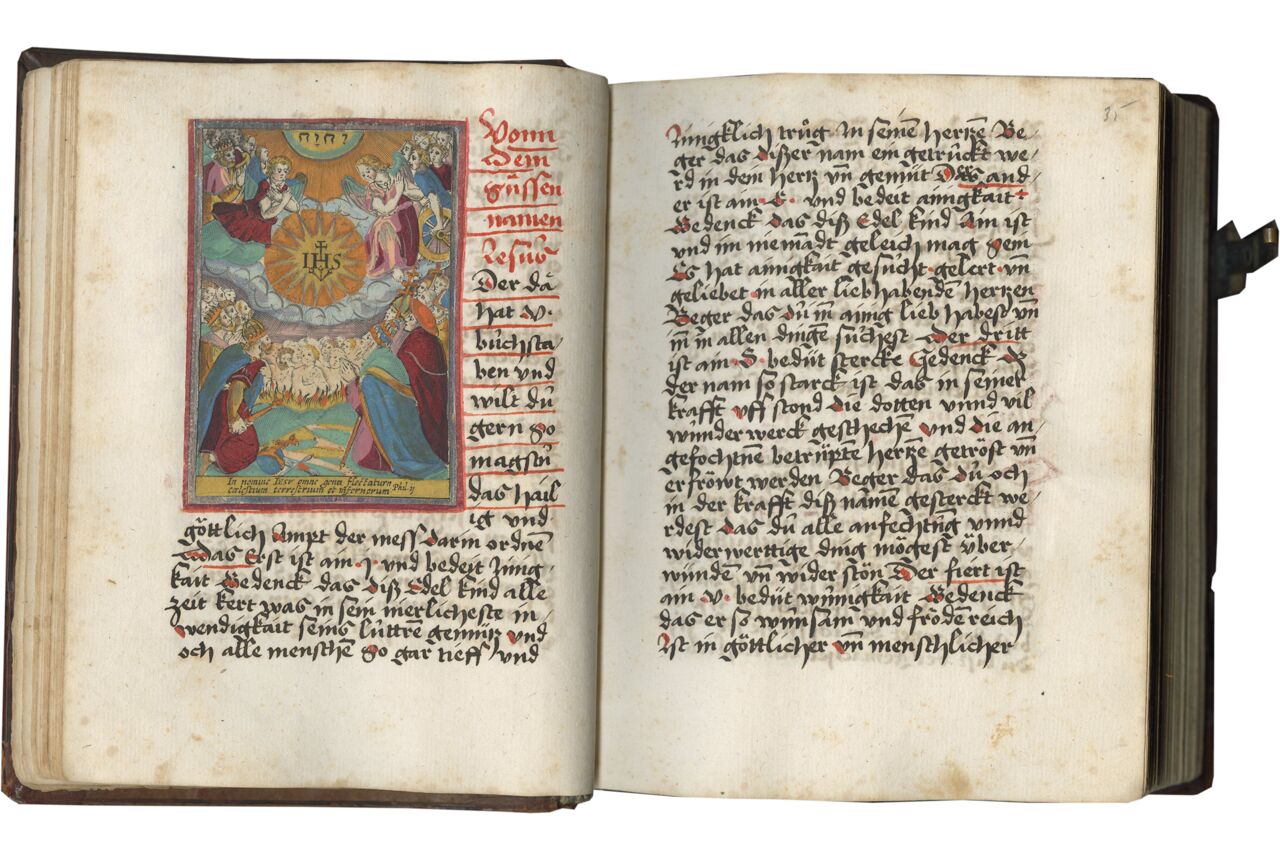 יהוה
IHS
In nomine Iesu omne genu flectatur
cœlestium terrestrium et infernorum Phil. ij
Vonn
dem
süssen
namen
Jesus
Der da
hat v.
bůchsta-
ben vnd
wilt dů
gern so
magstů
das hail
ig vnd
göttlich Ampt der mess darin ordnē
Das Erst ist ain .J. vnd bedeit Jnng-
kait Bedenck das diß Edel kind alle
zeit kert was in sein in
wendigkait seins luttrē gemütz vnd
och alle menschē so gar tieff vnd
35
Jnnigklich trůg in seinē hertzē Be-
ger das dißer nam ein getruckt we-
rd in dein hertz vn̄ gemüt Das and-
er ist ain .E. vnd bedeit ainigkait
Bedenck das diß Edel kind Ain ist
vnd im niemādt geleich mag sein
Es hat ainigkait gesůcht gelert vn̄
geliebet in aller lieb habendē hertzen
Beger das dů in ainig lieb habest vn̄
in in allen dingē sůchest Der dritt
ist ain .S. bedüt stercke Gedenck dz
der nam so starck ist das in seiner
krafft vff stond die dotten vnnd vil
wunder werck geschechē vnd die an-
gefochtnē betrüptē hertzē getröst vn̄
erfröwt werden Beger das dů och
in der krafft diß namē gesterckt we-
rdest das dů alle anfechtūg vnnd
widerwerttige ding mögest über-
windē vn̄ wider stōn Der fiert ist
ain .V. bedüt wůnigkait Bedenck
das er so wunsam vnd frödē reich
Jst in göttlicher vn̄ menschlicher